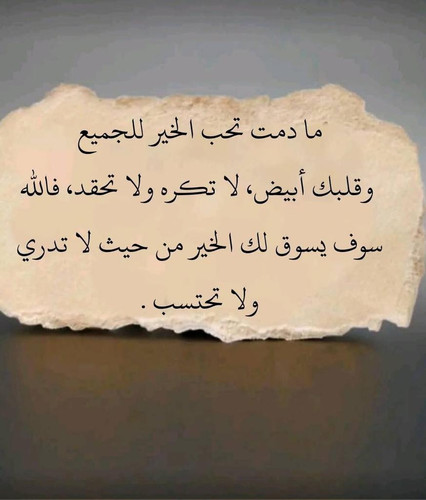 ما دمت تحب الخير للجميع
وقلبك أبيض، لا تكره ولا تحقد، فالله
سوف يسوق لك الخير من حيث لا تدري
ولا تحتسب .